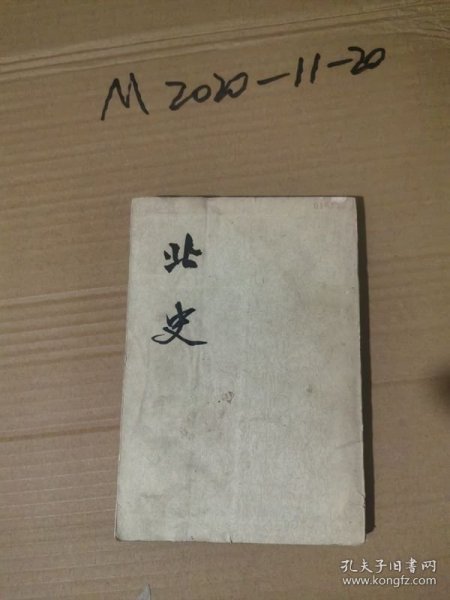 M 2020-11-20
北
史
孔夫子旧书网
www.kongfz.com